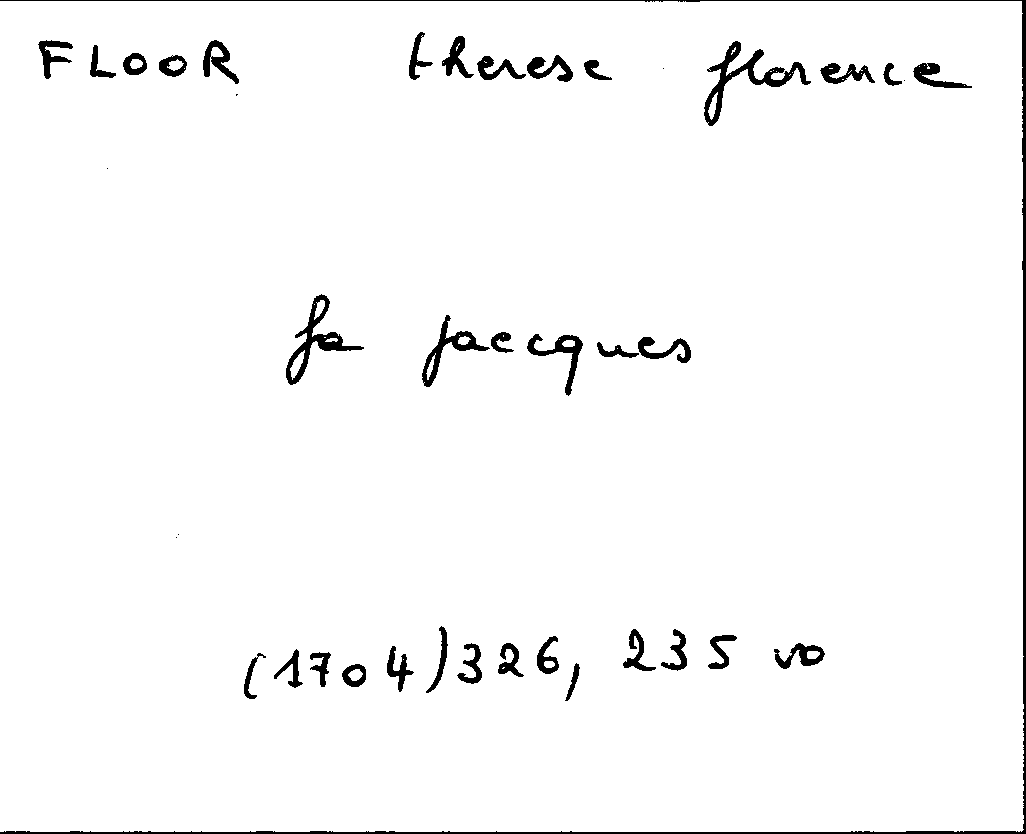 FLOOR therese florence
fa jaecques
(1704) 326, 235 vo